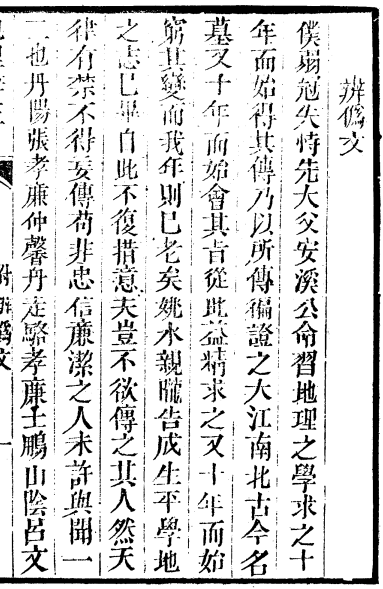 辨僞文
僕弱冠失恃先大父安溪公命習地理之學求之十
年而始得其傳乃以所傳徧證之大江南北古今名
墓又十年而始會其旨從此益精求之又十年而始
窮其變而我年則已老矣姚水親隴告成生平學地
之志已畢自此不復措意夫豈不欲傳之其人然天
律有禁不得妄傳苟非忠信廉潔之人未許與聞一
二也丹陽張孝廉仲馨丹徒駱孝廉士鵬山陰呂文